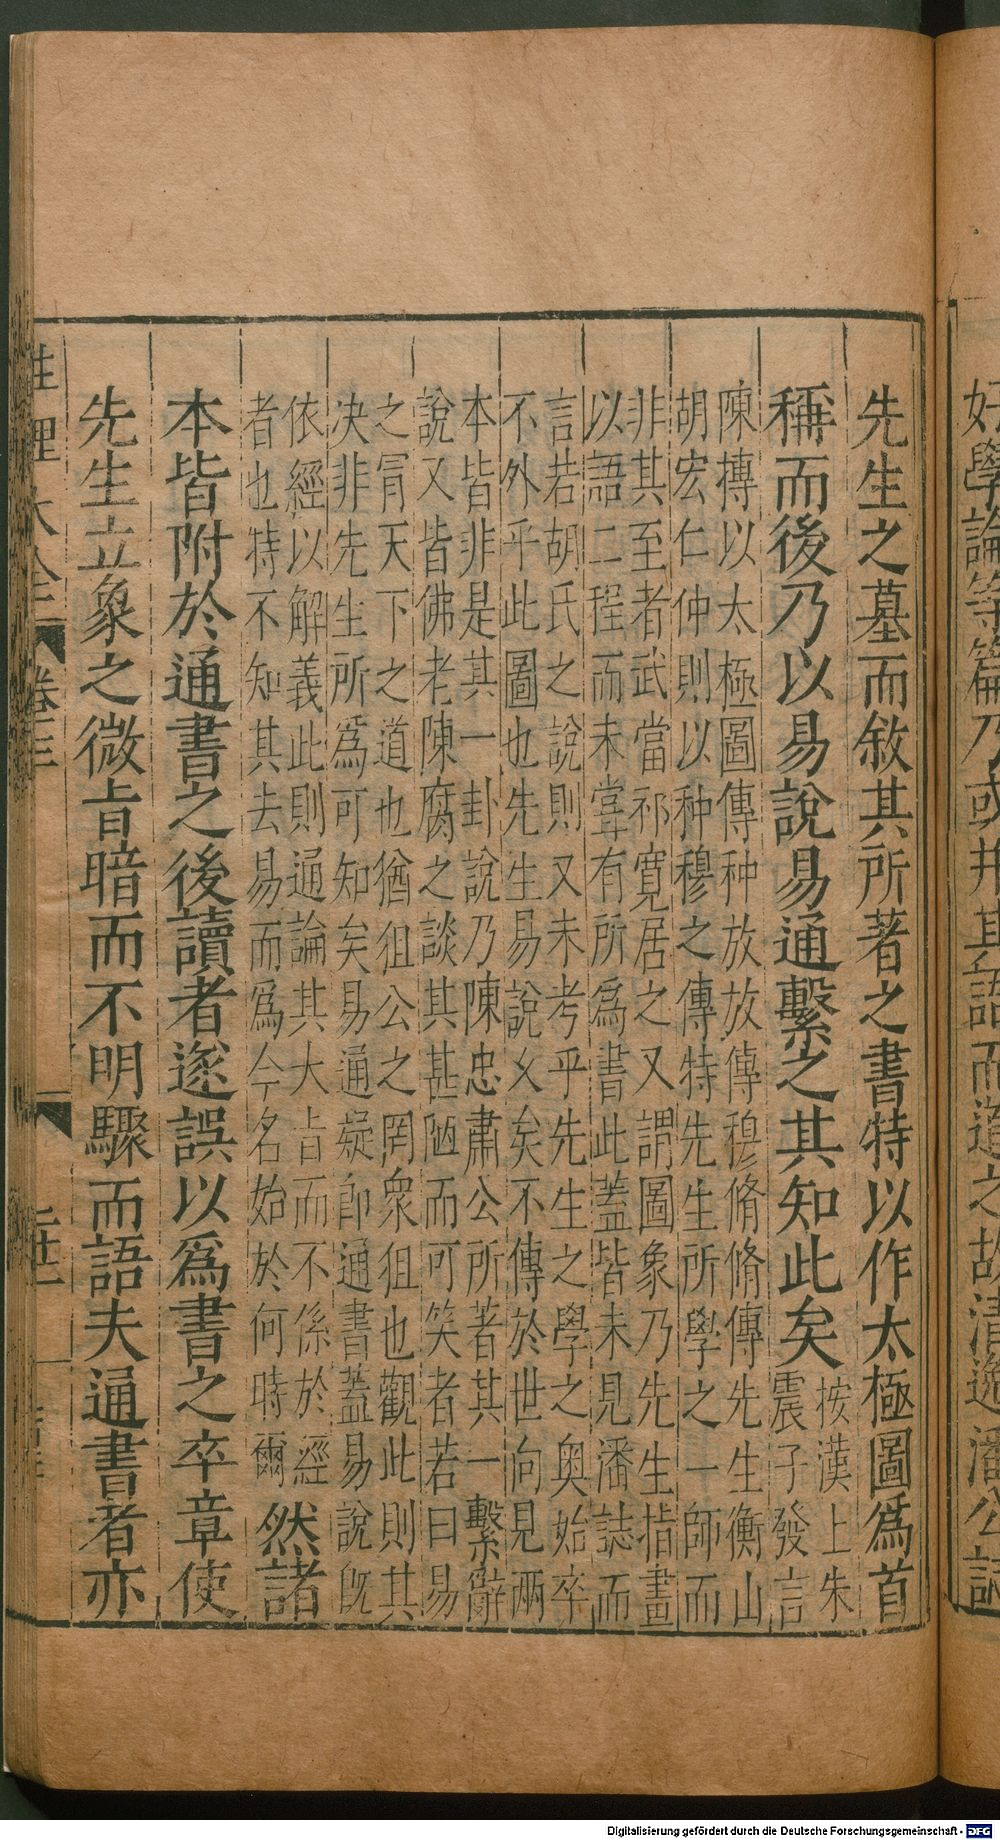 先生之墓而敘其所著之書特以作太極圖爲首
稱而後乃以易說易通繫之其知此矣
按漢上朱
震子發言
陳摶以太極圖傳种放放傳穆脩脩傳先生衡山
胡宏仁仲則以种穆之傳特先生所學之一師而
非其至者武當祁寛居之又謂圖象乃先生指畫
以語二程而未甞有所爲書此蓋皆未見潘誌而
言若胡氏之說則又未考乎先生之學之奥始卒
不外乎此圖也先生易說乆矣不傳於世向見兩
本皆非是其一卦說乃陳忠肅公所著其一繫辭
說又皆佛老陳腐之談其甚陋而可笑者若曰易
之冐天下之道也猶狙公之罔衆狙也觀此則其
决非先生所爲可知矣易通疑卽通書蓋易說旣
依經以解義此則通論其大㫖而不係於經
者也特不知其去易而爲今名始於何時爾
然諸
本皆附於通書之後讀者遂誤以爲書之卒章使
先生立象之微㫖暗而不明驟而語夫通書者亦
性理大全
卷三
二十一
Digitalisierung gefördert durch die Deutsche Forschungsgemeinschaft - DFG